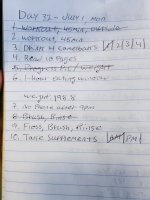 DAY 32 - JULY 1, MON
1. WORKOUT, 45MIN, OUTSIDE
2. WORKOUT, 45MIN
3. DRINK 4 CAMELBAKS 1 2 3 4
4. READ 10 PAGES
5. PROGRESS PIC / WEIGHT
6. 1-HOUR EATING WINDOW
WEIGHT: 198.8
7. NO PHONE AFTER 9PM
8. BRUSH, RINSE
9. FLOSS, BRUSH, RINSE
10. TAKE SUPPLEMENTS AM PM